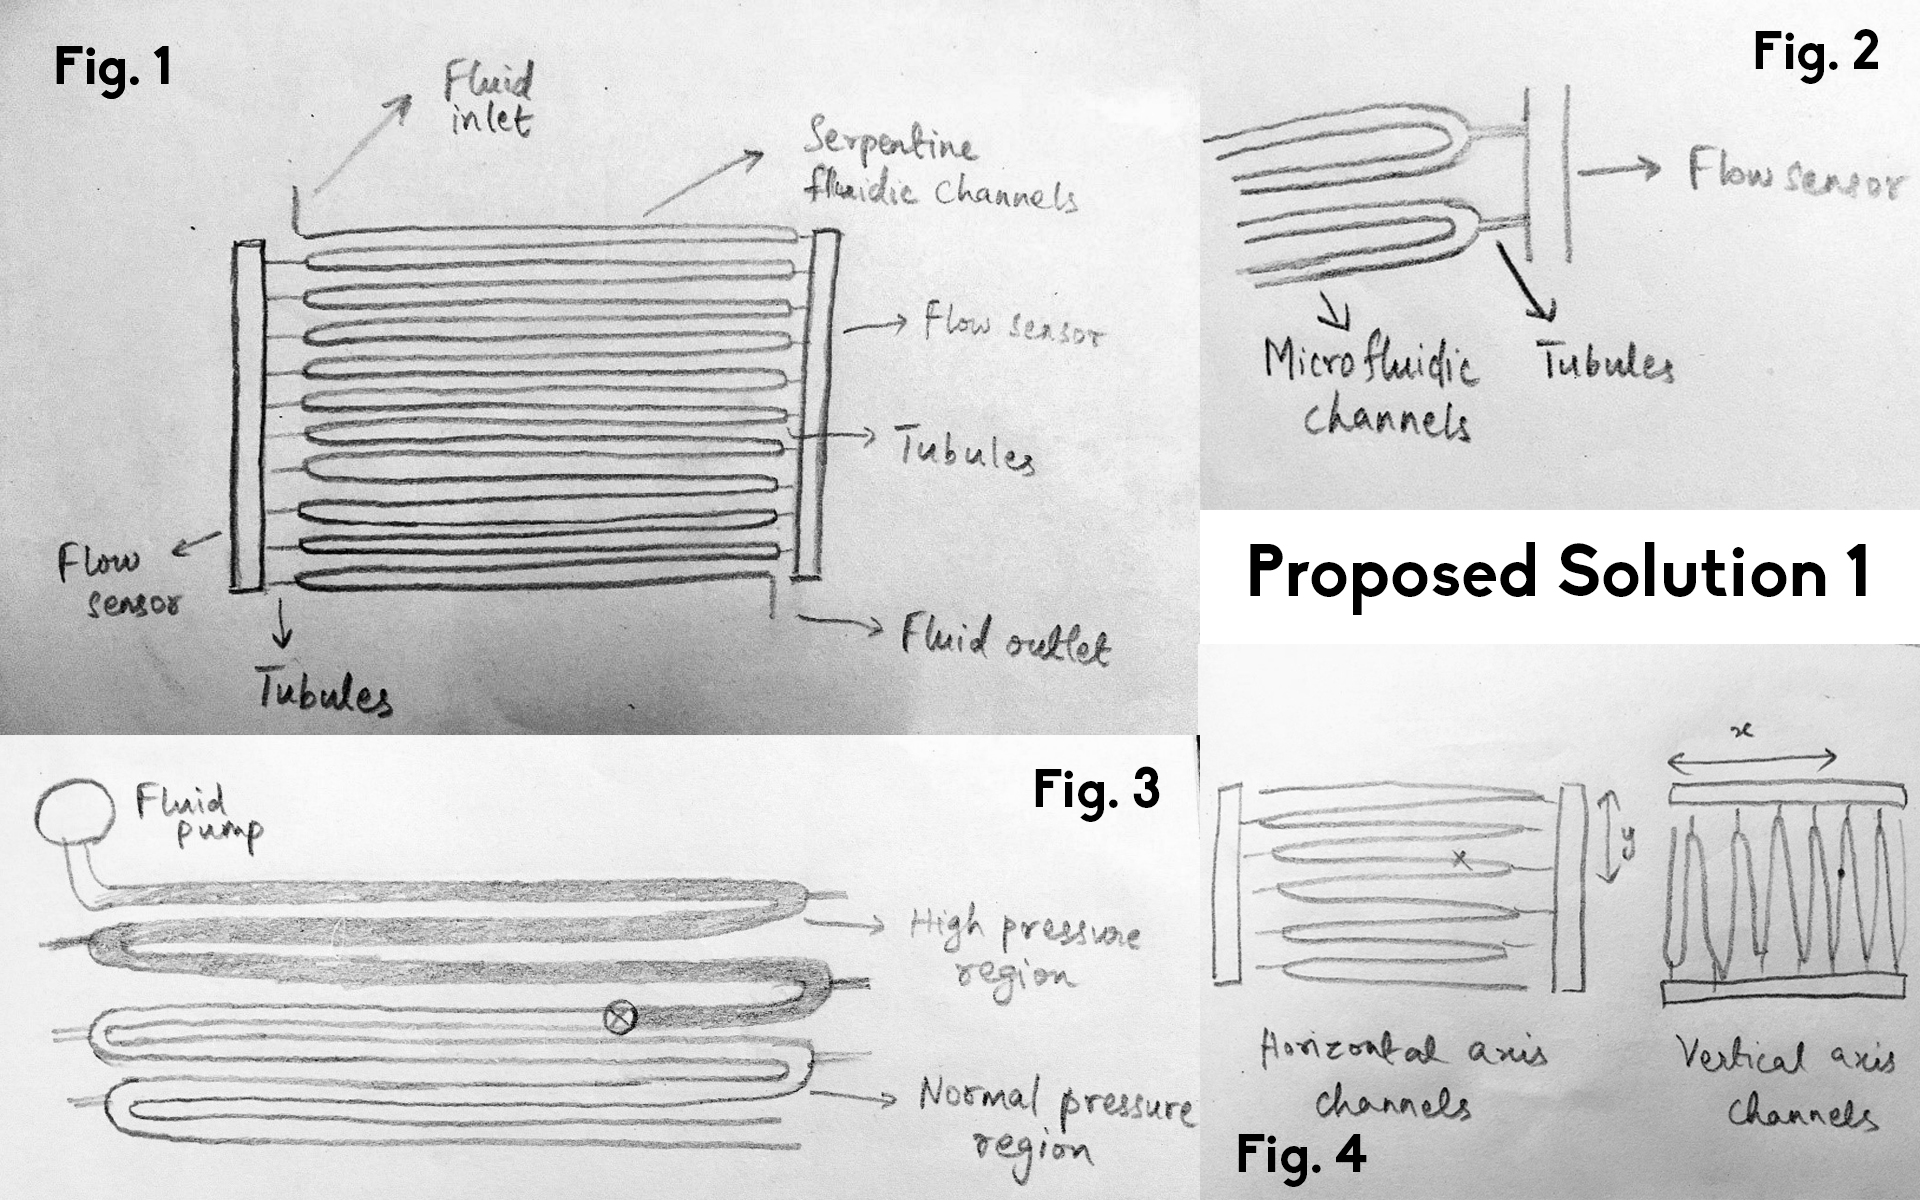 Fig. 1
Fluid
inlet
Serpentine
fluidic channels
Flow sensor
Tubules
Flow
sensor
Tubules
Fluid outlet
Fig. 2
Flow sensor
Microfluidic
channels
Tubules
Proposed Solution 1
Fig. 3
Fluid
pump
High pressure
region
Normal pressure
region
x
y
x
Horizontal axis
channels
Vertical axis
channels
Fig. 4